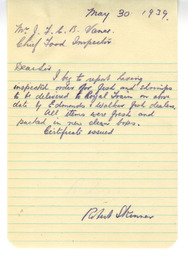 May 30. 1939.
Mr J. F. C. B. Vance.
Chief Food Inspector
Dear Sir
I beg to report having
inspected order for fish and shrimps
to be delivered to Royal Train on above
date by Edmunds & Walker fish dealers.
All items were fresh and
packed in new clean boxes.
Certificate issued
Robert Skinner